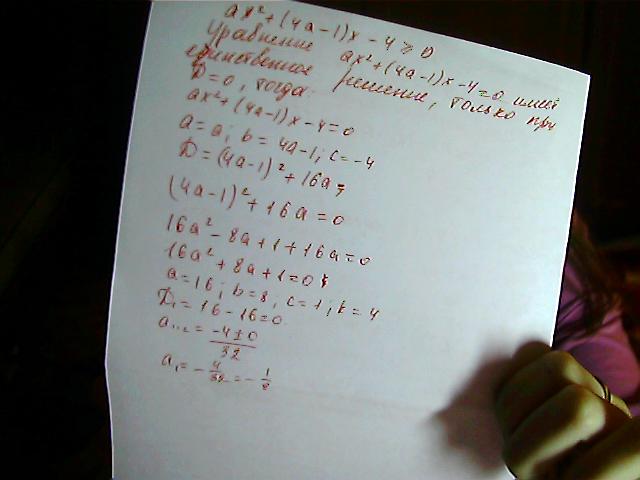 ax² + (4a-1)x - 4 ≥ 0
Уравнение ax² + (4a-1)x - 4 = 0 имеет
единственное решение, только при
D = 0, тогда:
ax² + (4a-1)x - 4 = 0
a = a; b = 4a-1; c = -4
D = (4a-1)² + 16a;
(4a-1)² + 16a = 0
16a² - 8a + 1 + 16a = 0
16a² + 8a + 1 = 0;
a = 16; b = 8, c = 1; k = 4
D₁ = 16 - 16 = 0
a₁,₂ = (-4 ± 0)/32
a₁ = -4/32 = -1/8